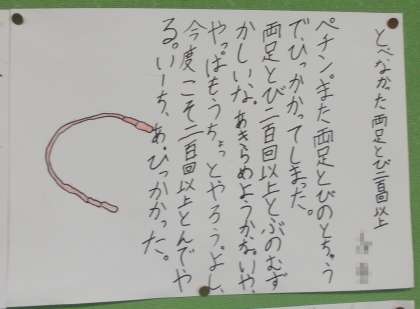 とべなかった両足とび二百回以上
ペチン。また両足とびのとちゅう
で、ひっかかってしまった。
両足とび二百回以上とぶのむず
かしいな。あきらめようかな。いや、
やっぱもうちょっとやろう。よし、
今度こそ二百回以上とんでや
る。いーち、あ、ひっかかった。